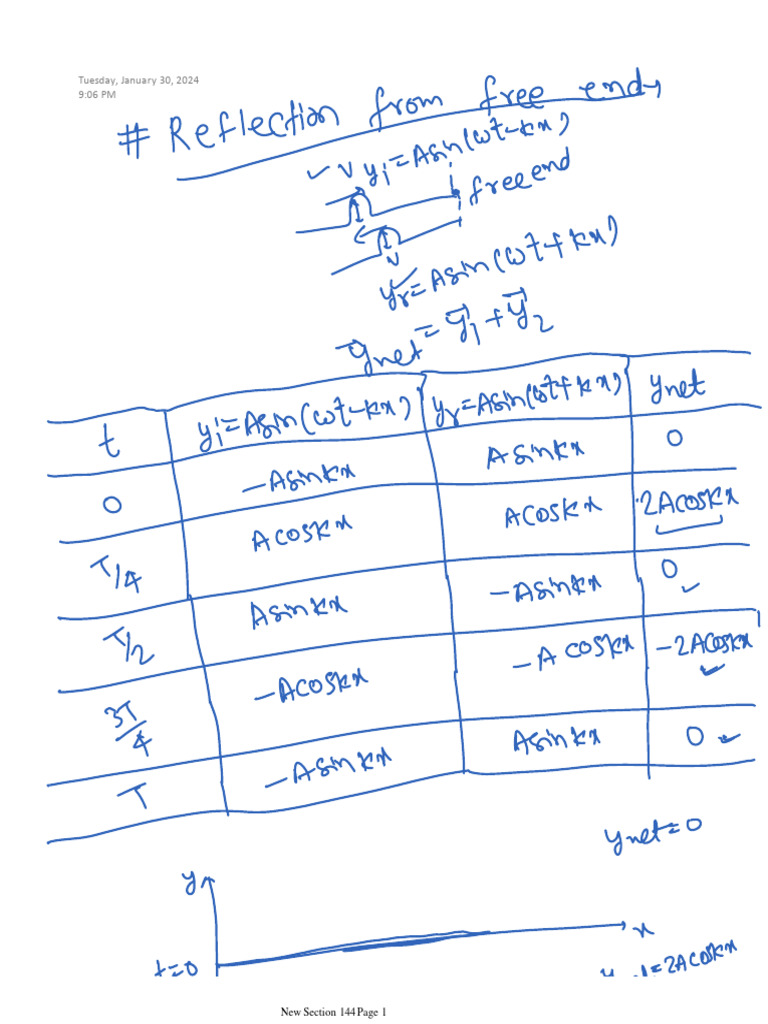 Tuesday, January 30, 2024
9:06 PM
# Reflection from free end
✓ v yi=Asin(ωt-kx)
free end
v
yr=Asin(ωt+kx)
ynet = y1 + y2
t yi=Asin(ωt-kx) yr=Asin(ωt+kx) ynet
0 -Asinkx Asinkx 0
T/4 Acoskx Acoskx 2Acoskx
T/2 Asinkx -Asinkx 0
3T/4 -Acoskx -Acoskx -2Acoskx
T -Asinkx Asinkx 0
ynet=0
y
x
t=0
=2Acoskx
New Section 144 Page 1